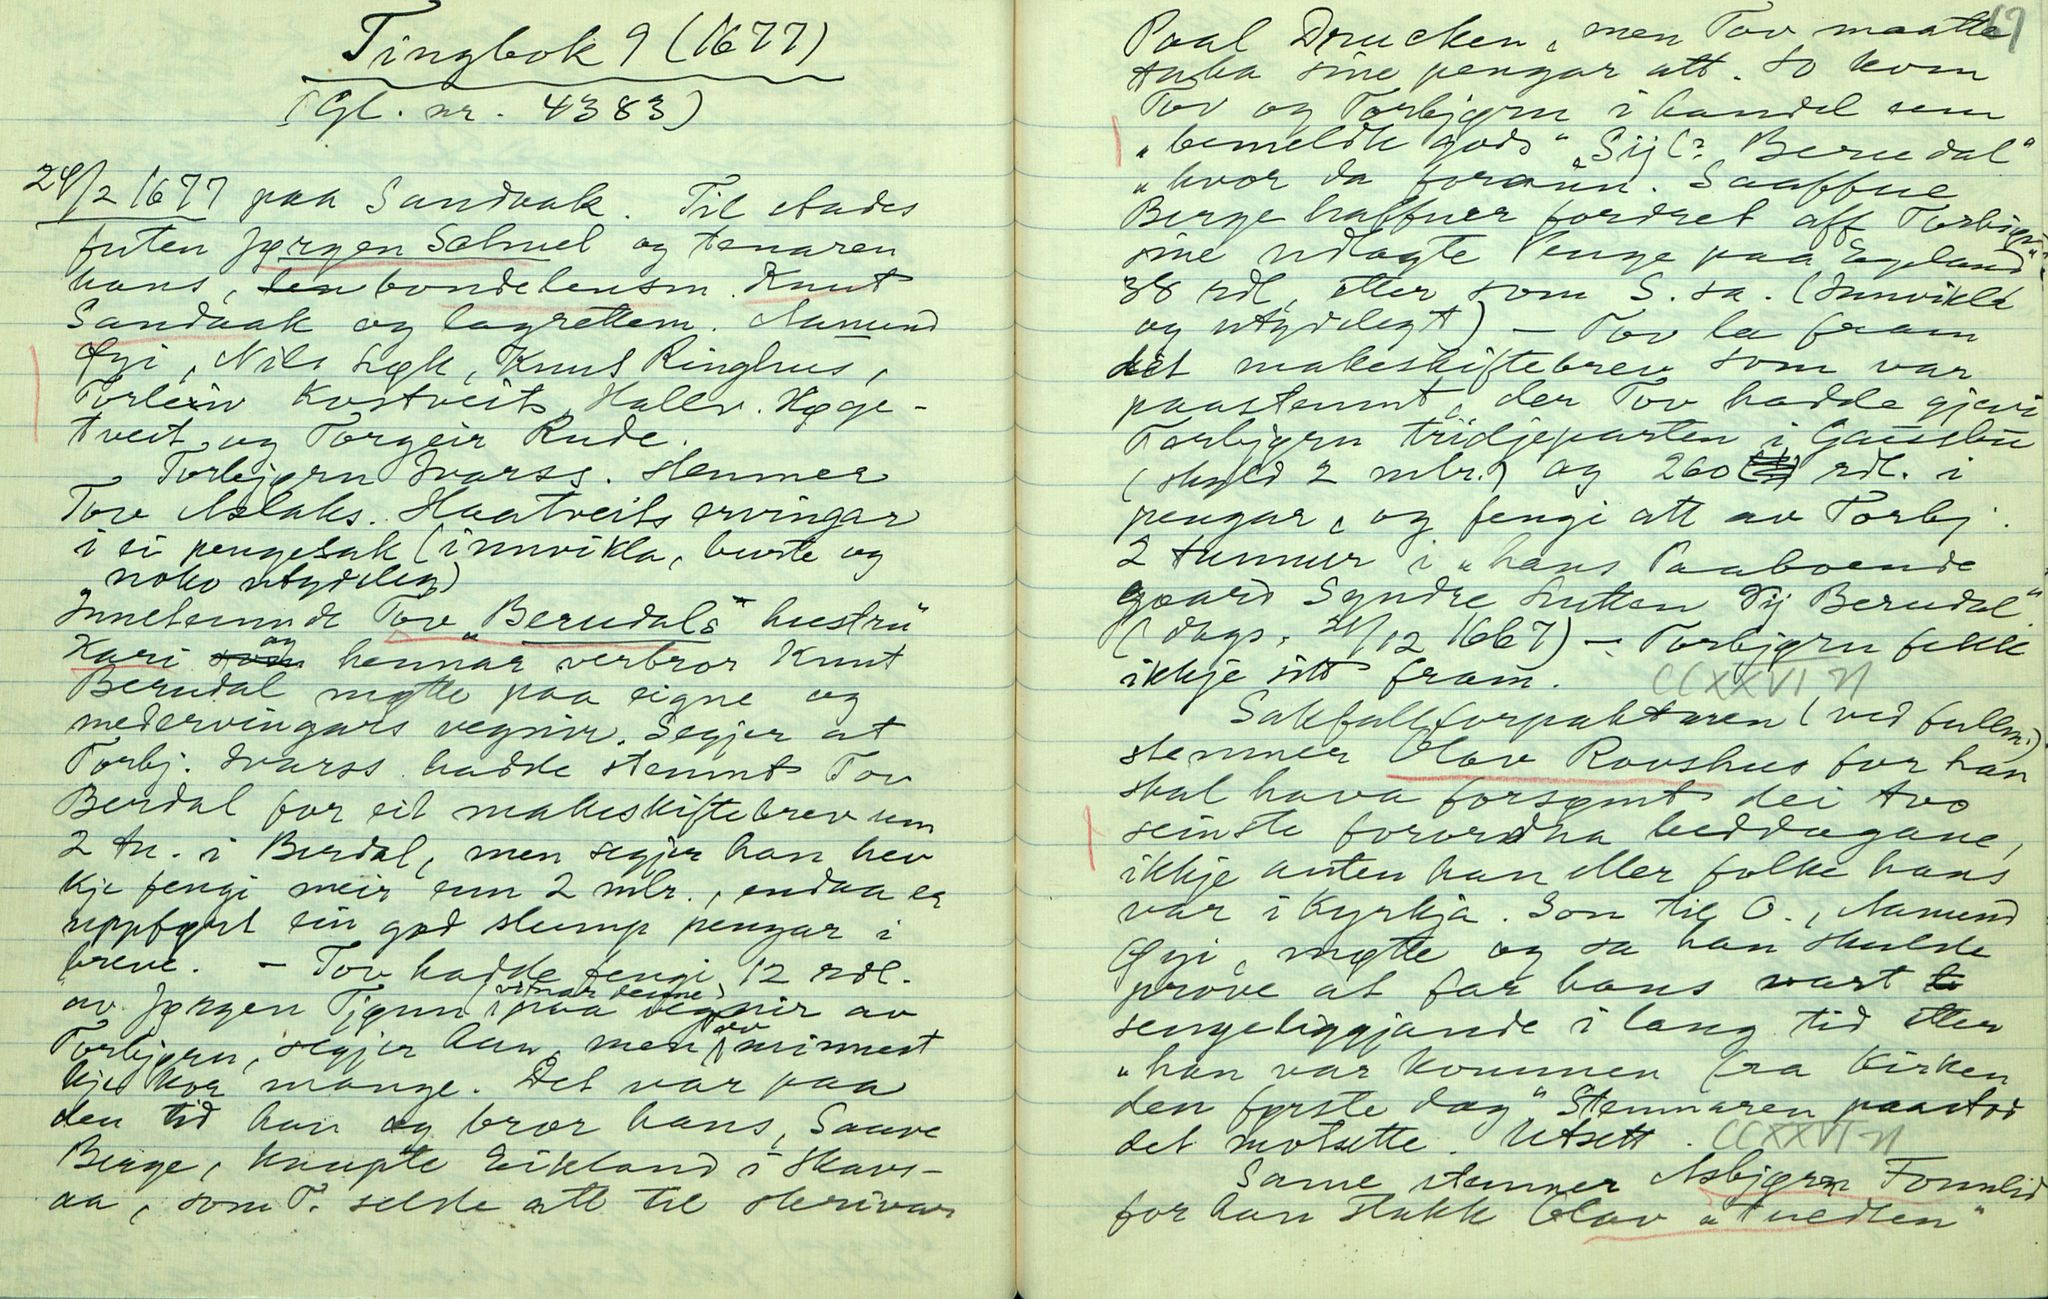 Tingbok 9 (1677)
(Gl. nr. 4383)
24/2 1677 paa Sandvak. Til stades
futen Jørgen Schnel og tenaren
hans, bondelensm. Knut
Sandvak og lagrettem. Aamund
Øyi, Nils Løk, Knut Ringhus,
Torleiv Kostveit, Hallv. Høge-
tveit og Torgeir Rude.
Torbjørn Ivarss. stemner
Tov Aslaks. Haatveits ervingar
i ei pengesak (innvikla, buste og
noko utydeleg)
Innstemnde Tov "Berudals" hustru
Kari og hennar verbror Knut
Berudal møtte paa eigne og
medervingars vegnir. Segjer at
Torbj. Ivarss. hadde stemnt Tov
Berdal for eit makeskiftebrev um
2 tn. i Berdal, men segjer han hev
kje fengi meir enn 2 mlr., endaa er
uppført ein god slump pengar i
breve. - Tov hadde fengi 12 rdl.
av Jørgen Tjønn (vitnar denne) paa vegnir av
Torbjørn, segjer han, men Tov minnest
kje kor mange. Det var paa
den tid han og bror hans, Saave
Berge, kaupte Eikland i Skavs-
aa, som T. selde att til skrivar
19
Paal Drucken, men Tov maatte
taka sine pengar att. So kom
Tov og Torbjørn i handel um
"bemeldte gods" "Sij (? Berudal"
"hvor da foraún. Saaffue
Berge haffuer fordret aff Torbiørn
sine udlagte Penge paa Egeland"
38 rdl, etter som S. sa. (Innvikla
og utydelegt) - Tov la fram
det makeskiftebrev som var
paastemnt, der Tov hadde gjevi
Torbjørn tridjeparten i Gausbu
(skyld 2 mlr.) og 260 rdl. i
pengar, og fengi att av Torbj.
2 tunnur i "hans Paaboende
gaard Syndre Lutten Sij Berudal"
(dags. 21/12 1667) - Torbjørn fekk
ikkje sitt fram. CCXXVI n
Sakfallsforpaktaren (ved fullm.)
stemner Olav Rovshus for han
skal hava forsømt dei tvo
seinste forordna beddagane,
ikkje anten han eller folke hans
var i kyrkja. Son til O., Aamund
Øyi, møtte og sa han skulde
prove at far hans vart
sengeliggjande i lang tid etter
"han var kommen fra Kirken
den første dag". Stemnaren paastod
det motsette. Utsett. CCXXVI n
Same stemner Asbjørn Fonnlid
for han stakk Olav "Tuedten"